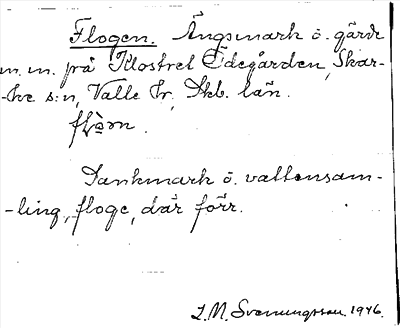 Flogen. Ängsmark ö. gärde
m.m. på Klostret Ödegården, Skar-
-ke s:n, Valle hr, Skb. län.
Sankmark ö. vattensam-
-ling, floge, där förr.
J.M. Svenungsson. 1946.